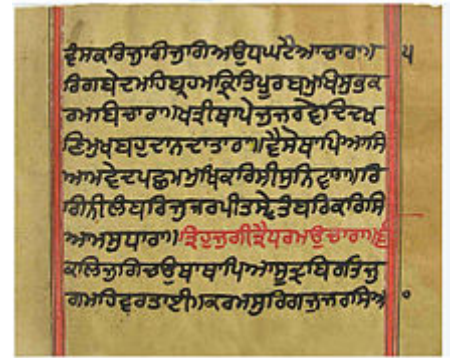 ਵੰਸਕਰਿਜੁਗਿਜੁਗਿਅਉਧਘਟੈਆਚਾਰਾ॥ ੫
ਰਿਗਬੇਦਮਹਿਬ੍ਰਹਮਕ੍ਰਿਤਿਪੂਰਬਮੁਖਿਸੁਭਕ
ਰਮਬਿਚਾਰਾ॥ਖਤ੍ਰੀਥਾਪੇਜੁਜਰਵੇਦਿਦਖ
ਣਿਮੁਖਬਹੁਦਾਨਦਾਤਾਰਾ॥ਵੈਸੋਥਾਪਿਆਸਿ
ਆਮਵੇਦਪਛਮਮੁਖਿਕਰਿਸੀਸੁਨਿਵਾਰਾ॥ਰਿ
ਗਿਨੀਲੰਬਰਿਜੁਜਰਪੀਤਸ੍ਵੇਤੰਬਰਿਕਰਿਸਿ
ਆਮਸੁਧਾਰਾ॥ਤ੍ਰਿਹੁਜੁਗੀਤ੍ਰੈਧਰਮਉਚਾਰਾ॥੬
ਕਲਿਜੁਗਿਚਉਥਾਥਾਪਿਆਸੂਦ੍ਰਬਿਰਤਿਜੁ
ਗਮਹਿਵਰਤਾਈ॥ਕਰਮਸੁਰਿਗਜੁਜਰਸਿਆ